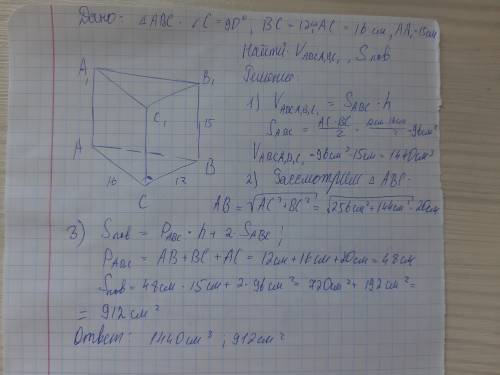 Дано: △ABC. ∠C=90°, BC=12, AC=16 см, AA₁=15см
Найти V_ABCA₁B₁C₁, Sпов
Решение
A₁
B₁
C₁
15
A
B
16
12
C
1) V_ABCA₁B₁C₁ = S_ABC · h
S_ABC = AC·BC/2 = 12см·16см/2 = 96см²
V_ABCA₁B₁C₁ = 96см²·15см = 1440см³
2) Рассмотрим △ABC.
AB = √AC²+BC² = √256см²+144см² = 20см
3) Sпов = P_ABC · h + 2·S_ABC;
P_ABC = AB + BC + AC = 12см+16см+20см=48см
Sпов = 48см · 15см + 2·96см² = 720см² + 192см² =
= 912см²
Ответ: 1440см³, 912см²